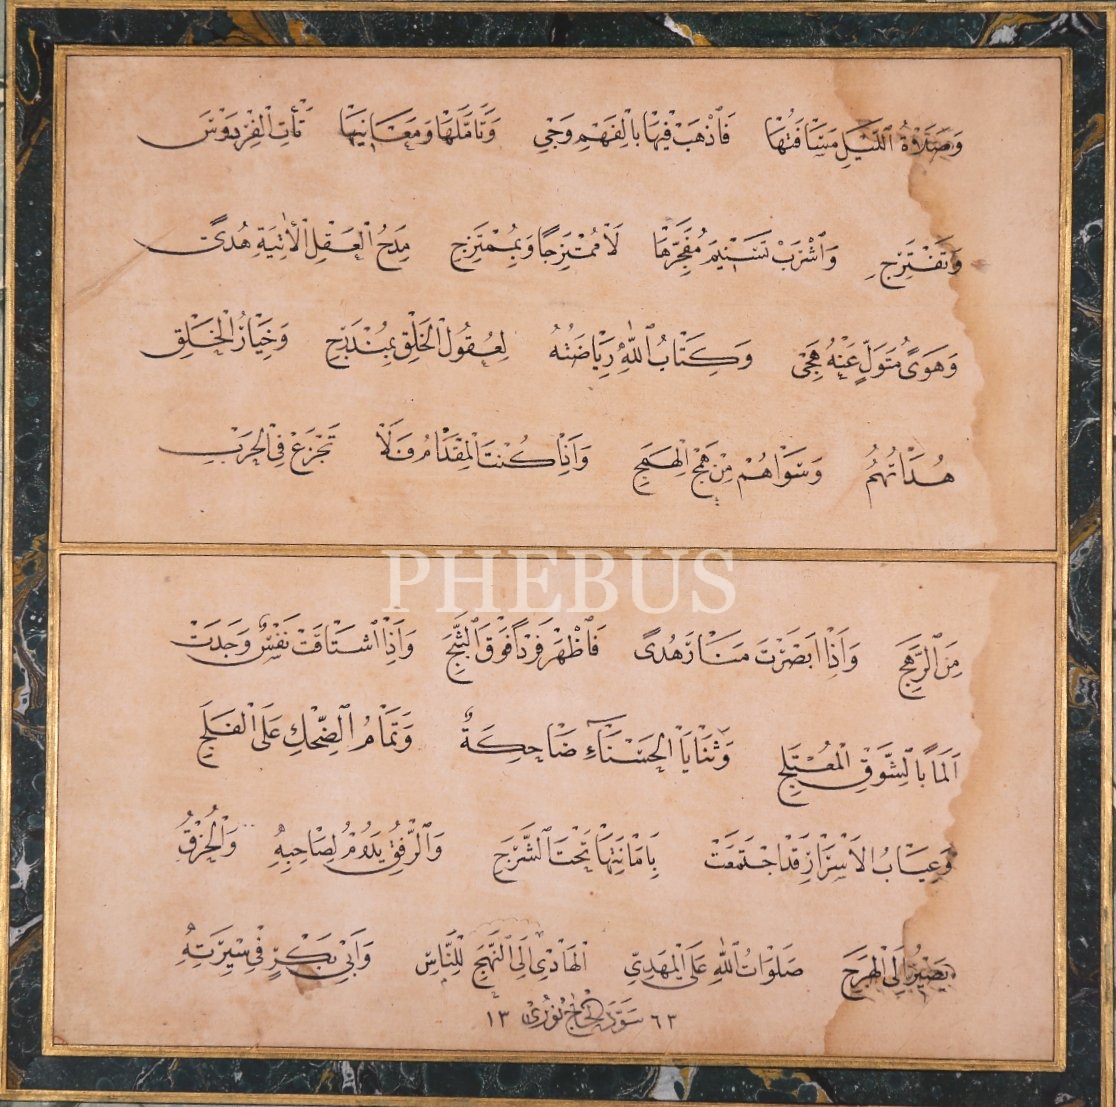 وَصَلَاةُ اللَّيْلِ مَسَافَتُهَا فَاذْهَبْ فِيهَا بِالْفَهْمِ وَجِي وَتَأَمَّلْهَا وَمَعَانِيَهَا تَأْتِ الْفِرْدَوْسَ
وَتَفْتَرِجِ وَاشْرَبْ تَسْنِيمَ مُفَجَّرِهَا لَا مُمْتَزِجًا وَبِمُمْتَزِجِ مِدَحُ الْعَقْلِ الْاٰتِيَةِ هُدًى
وَهَوًى مُتَوَلٍّ عَنْهُ هُجِي وَكِتَابُ اللّٰهِ رِيَاضَتُهُ لِعُقُولِ الْخَلْقِ بِمُنْدَرِجِ وَخِيَارُ الْخَلْقِ
هُدَاتُهُمُ وَسَوَاهُمْ مِنْ هَمَجِ الْهَمَجِ وَاِذَا كُنْتَ الْمِقْدَامَ فَلَا تَجْزَعْ فِي الْحَرْبِ
مِنَ الرَّهَجِ وَاِذَا اَبْصَرْتَ مَنَارَ هُدًى فَاظْهَرْ فَرْدًا فَوْقَ الثَّبَجِ وَاِذَا اشْتَاقَتْ نَفْسٌ وَجَدَتْ
اَلَمًا بِالشَّوْقِ الْمُعْتَلِجِ وَثَنَايَا الْحَسْنَاءِ ضَاحِكَةٌ وَتَمَامُ الضِّحْكِ عَلَى الْفَلَجِ
وَعِيَابُ الْاَسْرَارِ قَدِ اجْتَمَعَتْ بِاَمَانَتِهَا تَحْتَ الشَّرَجِ وَالرِّفْقُ يَدُومُ لِصَاحِبِهِ وَالْخُرْقُ
يَصِيرُ اِلَى الْهَرَجِ صَلَوَاتُ اللّٰهِ عَلَى الْمَهْدِيِّ الْهَادِي اِلَى النَّهَجِ لِلنَّاسِ وَاَبِي بَكْرٍ فِي سِيرَتِهِ
سَوَّدَهُ الْحَاجّ نُورِي ١٣ ٦٣
PHEBUS